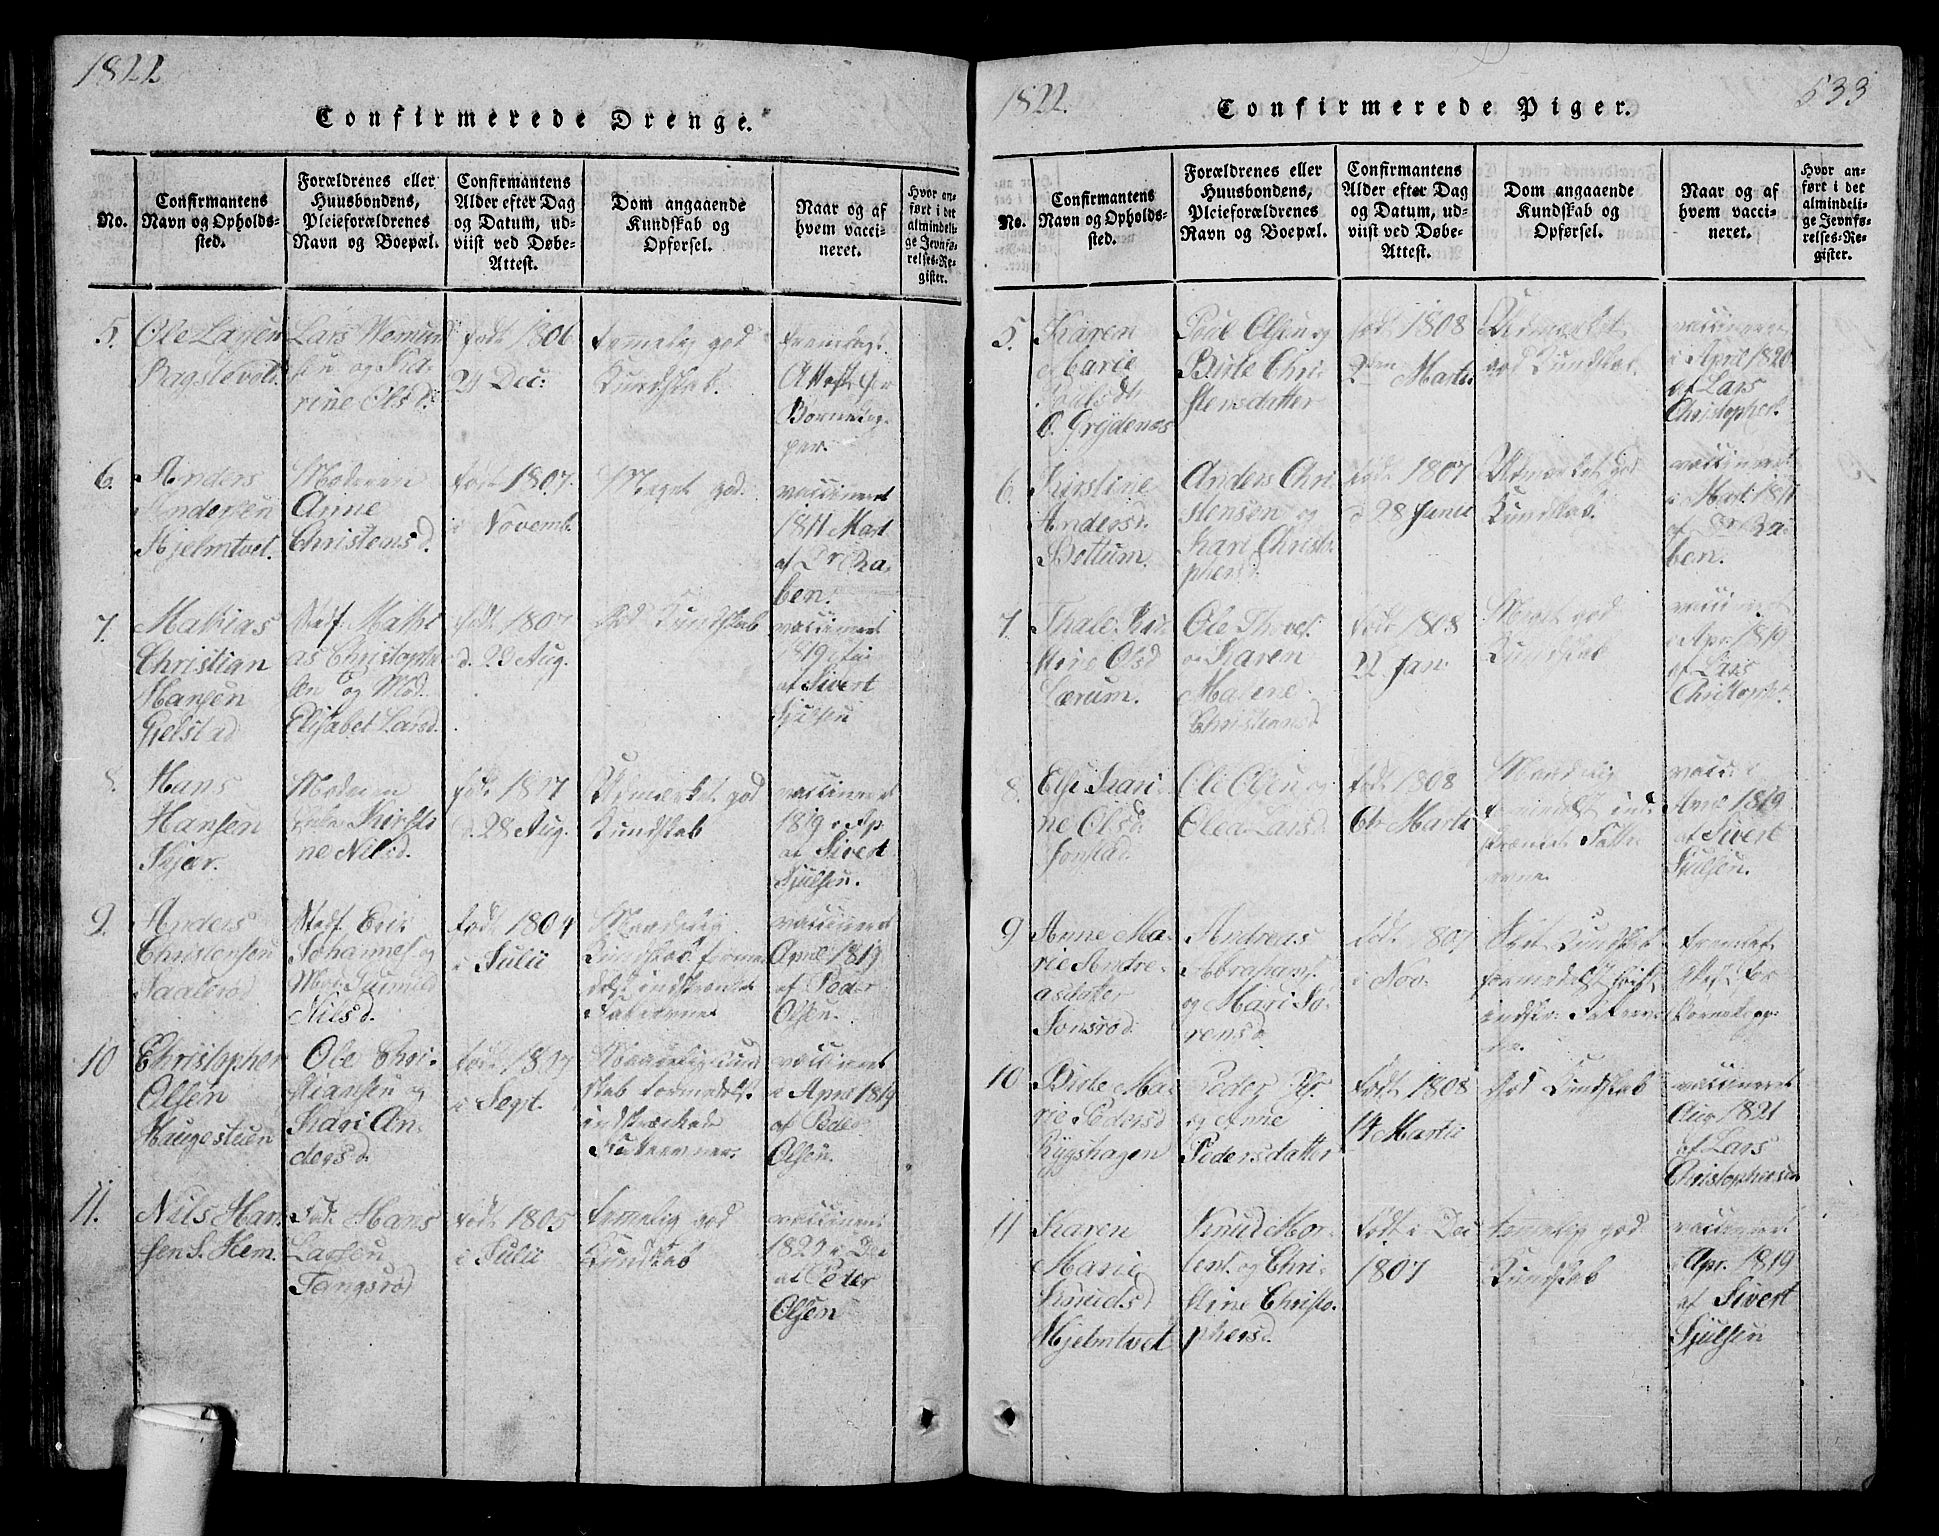 1822
Confirmerede Drenge.
No.
Confirmantens
Navn og Opholds-
sted.
Forældrenes eller
Huusbondens,
Pleieforældrenes
Navn og Boepæl.
Confirmantens
Alder efter Dag
og Datum, ud-
viist ved Døbe-
Attest.
Dom angaaende
Kundskab og
Opførsel.
Naar og af
hvem vacci-
neret.
Hvor an-
ført i det
almindeli-
ge Jevnfø-
relses-Re-
gister.
5.
Ole Larsen
Lars
og
rine Olsd.
født 1806
29 Dec:
temmelig god
Kundskab.
Attest for
Børnekop-
per.
6.
Anders
Andersen
Hjelmtvet.
Moderen
Anne
Christensd.
født 1807.
i Novemb.
Meget god.
vaccineret
1811 Mart
af Dr Ra-
ben.
7.
Mathias
Christian
Hansen
Gjelstad
Stef. Mathi
as Christophe
sen og Mod.
Elisabet Larsd.
født 1807
d. 23 Aug.
God Kundskab
vaccineret
1819
af Sivert
Sjulsen
8.
Hans
Hansen
Skjær.
Moderen
Kirsti-
ne Nilsd.
født 1807
d. 28 Aug.
Udmærket god
Kundskab
vaccineret
1819 i Ap.
af Sivert
Sjulsen.
9.
Anders
Christensen
Stef. Eric
Johannes. og
Mod. Gunnild
Nilsd.
født 1804
i Julii
Maadelig
Kundskab forme
delst indskrænkede
vaccineret
April 1819
af Peder
Olsen.
10
Christopher
Olsen
Haugesteen
Ole Chri-
stiansen og
Kari An-
dersd.
født 1807
i Sept.
formedelst
indskrænkede
vaccineret
i April 1819
af Peder
Olsen.
11.
Nils Han
sen S. Hem.
Hans
Larsen
Tangsrød
født 1805
i Julii
temmelig god
Kundskab
vaccineret
1822 i Dec
af Peder
Olsen
1822.
Confirmerede Piger.
533
No.
Confirmantens
Navn og Opholds-
sted.
Forældrenes eller
Huusbondens,
Pleieforældrenes
Navn og Boepæl.
Confirmantens
Alder efter Dag
og Datum, ud-
viist ved Døbe-
Attest.
Dom angaaende
Kundskab og
Opførsel.
Naar og af
hvem vacci-
neret.
Hvor an-
ført i det
almindeli-
ge Jevnfø-
relses-Re-
gister.
5.
Karen
Marie
Poulsdt.
Ø. Grydenæs
Poul Olsen og
Birte Chri-
stensdatter
født 1808
2den Martii
Udmærket
god Kundskab.
vaccineret
i April 1820
af Lars
Christopher.
6.
Kirstine
Andersd.
Bottum.
Anders Chri
stensen og
Kari Christo-
phersd.
født 1807
d 28 Junii
Udmærket god
Kundskab.
vaccineret
i Mart. 1811
af Dr Ra-
ben.
7.
Thale Kir
stine Olsd
Lærum.
Ole
og Karen
Malene
Christiansd
født 1808
22 Jan.
Meget god
Kundskab
vaccineret
i Apr. 1819
af Lars
Christoph.
8.
Else Kari-
ne Olsd.
Jonstad.
Ole Olsen og
Olea Larsd.
født 1808
6te Martii
Maadelig
formedelst ind-
skrænket Fatte
evne.
April 1819
af Sivert
Sjulsen.
9
Anne Ma-
rie Andre-
asdatter
Jonsrød
Andreas
Abrahams.
og Mari Sø-
rensd.
født 1807
i Nov.
Kundskab
formedelst
10
Birte Ma-
rie Pedersd
Rygshagen
Peder
og Anne
Pedersdatter
født 1808
14 Martii
God Kundskab
vaccineret
Aug 1821
af Lars
Christophersen
11
Karen
Marie
Knudsd
Hjelmtvet
Knud Mor-
tens. og Chri-
stine Christo-
phersd.
født i Dec
1807
temmelig god
Kundskab
vaccineret
i Apr. 1819
af Sivert
Sjulsen